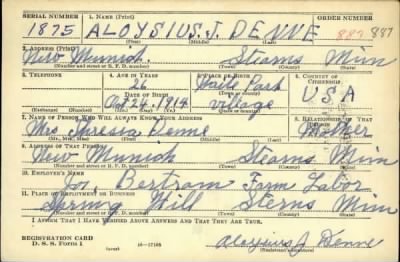 SERIAL NUMBER 1. NAME (Print) ORDER NUMBER
1875 ALOYSIUS. J. DENNE 887 887
(First) (Middle) (Last)
2. ADDRESS (Print)
New Munich Stearns Minn
(Number and street or R. F. D. number) (Town) (County) (State)
3. TELEPHONE 4. AGE IN YEARS 5. PLACE OF BIRTH 6. COUNTRY OF CITIZENSHIP
26 Park
DATE OF BIRTH (Town or county)
Oct 24, 1914 village USA
(Exchange) (Number) (Mo.) (Day) (Yr.) (State or country)
7. NAME OF PERSON WHO WILL ALWAYS KNOW YOUR ADDRESS 8. RELATIONSHIP OF THAT PERSON
Mrs Theresia Denne Mother
(Mr., Mrs., Miss) (First) (Middle) (Last)
9. ADDRESS OF THAT PERSON
New Munich Stearns Minn
(Number and street or R. F. D. number) (Town) (County) (State)
10. EMPLOYER'S NAME
Bertram Farm Labor
11. PLACE OF EMPLOYMENT OR BUSINESS
Spring Hill Sterns Minn
(Number and street or R. F. D. number) (Town) (County) (State)
I AFFIRM THAT I HAVE VERIFIED ABOVE ANSWERS AND THAT THEY ARE TRUE.
REGISTRATION CARD
D. S. S. Form 1 (over) 16-17105 Aloysius J Denne
(Registrant's signature)